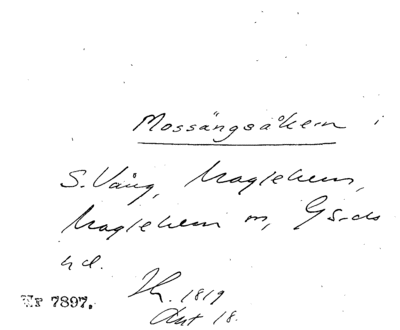 Mossängsåkern i
S. Vång, Maglehem,
Maglehem sn, Gärds
hd.
1819
Akt 18.
Wr 7897.